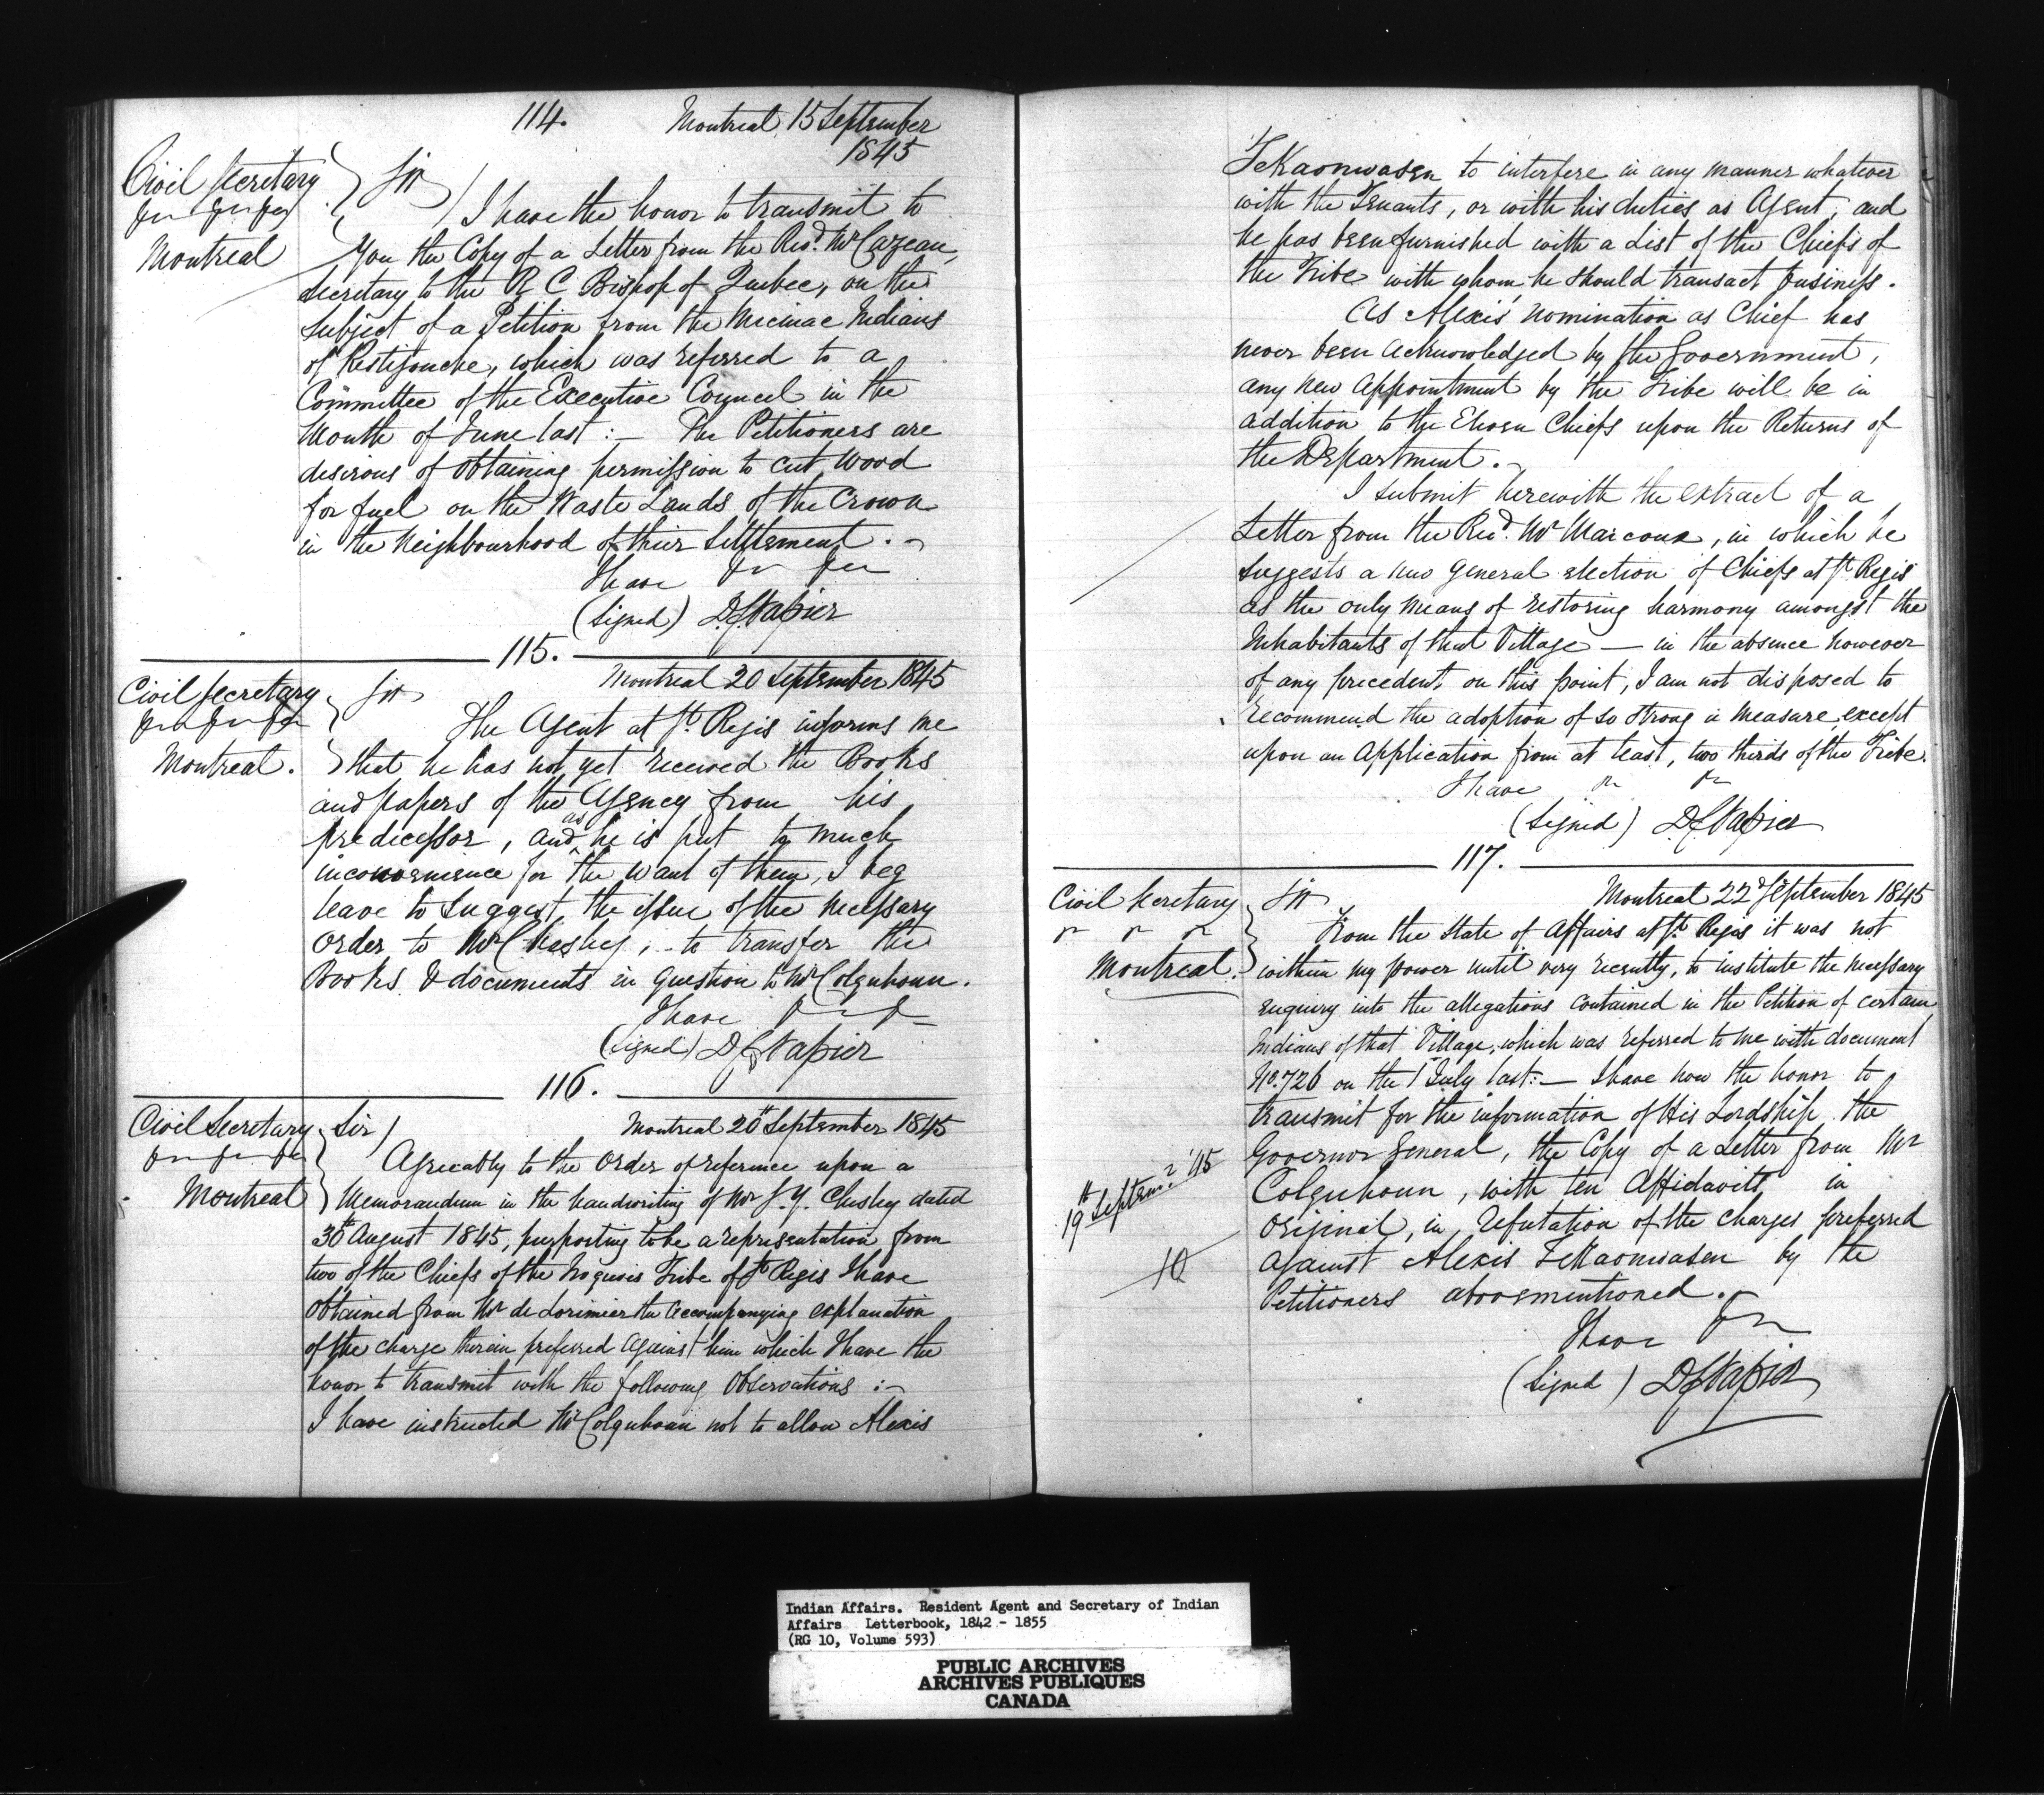 114.
Montreal 15 September
1845
Civil Secretary
&c &c &c
Montreal
Sir
I have the honor to transmit to
You the Copy of a Letter from the Revd. Mr Cazeau,
Secretary to the R C Bishop of Quebec, on the
Subject of a Petition from the Micmac Indians
of Restigouche, which was referred to a
Committee of the Executive Council in the
Month of June last :— The Petitioners are
desirous of obtaining permission to cut wood
for fuel on the Waste Lands of the Crown
in the Neighbourhood of their Settlement .~
I have &c &c
(Signed) D C Napier
115.
Montreal 20 September 1845
Civil Secretary
&c &c &c
Montreal.
Sir
The Agent at St. Regis informs me
that he has not yet received the Books
and papers of the Agency from his
predecessor, and as he is put to much
inconvenience for the want of them, I beg
leave to suggest the issue of the necessary
order to Mr Chesley, to transfer the
Books & documents in question to Mr Colquhoun.
I have &c &c
(Signed) D C Napier
116.
Montreal 20th September 1845
Civil Secretary
&c &c &c
Montreal
Sir
Agreeably to the order of reference upon a
Memorandum in the handwriting of Mr S. Y. Chesley dated
30th August 1845, purporting to be a representation from
two of the Chiefs of the Iroquois Tribe of St Regis I have
obtained from Mr de Lorimier the accompanying explanation
of the charge therein preferred against him which I have the
honor to transmit with the following observations :~
I have instructed Mr Colquhoun not to allow Alexis
TeKaonwasen to interfere in any manner whatever
with the Tenants, or with his duties as Agent, and
he has been furnished with a List of the Chiefs of
the Tribe with whom he should transact business.
As Alexis' nomination as Chief has
never been acknowledged by the Government,
any new appointment by the Tribe will be in
addition to the Eleven Chiefs upon the Returns of
the Department.~
I submit herewith the extract of a
Letter from the Revd. Mr Marcoux, in which he
suggests a new general election of Chiefs at St Regis
as the only means of restoring harmony amongst the
Inhabitants of that Village — in the absence however
of any precedent, on this point, I am not disposed to
recommend the adoption of so strong a measure, except
upon an Application from at least, two thirds of the Tribe.
I have &c &c
(Signed) D C Napier
117.
Montreal 22d September 1845
Civil Secretary
&c &c &c
Montreal.
Sir
From the State of Affairs at St. Regis it was not
within my power until very recently, to institute the necessary
enquiry into the allegations contained in the Petition of certain
Indians of that Village, which was referred to me with document
No. 726 on the 1 July last:— I have now the honor to
transmit for the information of His Lordship the
Governor General, the Copy of a Letter from Mr
19th September '45
Colquhoun, with ten Affidavits in
original, in refutation of the charges preferred
10
against Alexis TeKaonwasen by the
Petitioners abovementioned.~
I have &c
(Signed) D C Napier
Indian Affairs. Resident Agent and Secretary of Indian
Affairs Letterbook, 1842 - 1855
(RG 10, Volume 593)
PUBLIC ARCHIVES
ARCHIVES PUBLIQUES
CANADA